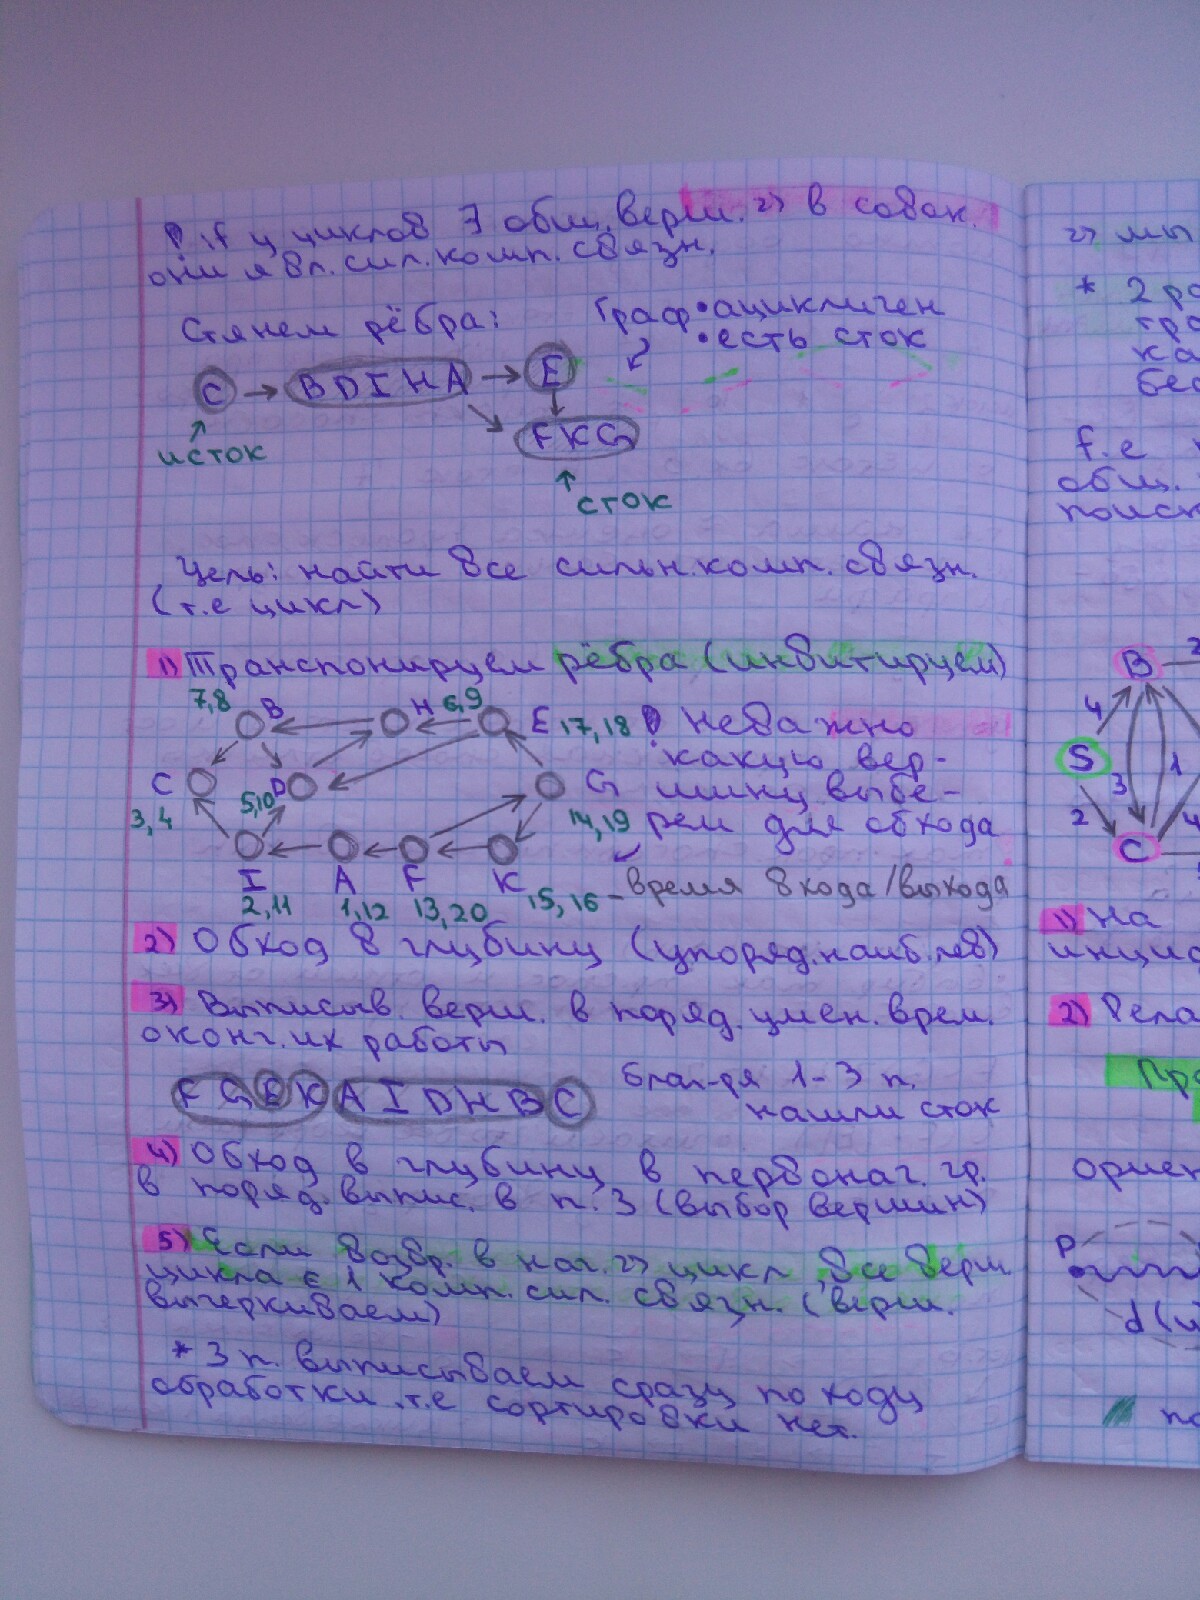 if у циклов ∃ общ. верш. => в совок.
они явл. сил. комп. связн.
Стянем рёбра:
Граф • ацикличен
• есть сток
C → BDIHA → E
FKG
исток
сток
Цель: найти все сильн. комп. связн.
(т.е цикл)
1) Транспонируем рёбра (инвитируем)
7,8 B H 6,9 E 17,18
Неважно
какую вер-
шину выбе-
рем для обхода
C 3,4 5,10 D G 14,19
I A F K
2,11 1,12 13,20 15,16 – время входа/выхода
2) Обход в глубину (упоряд. наиб. лев)
3) Выписыв. верш. в поряд. умен. врем.
оконч. их работы
F G E K A I D H B C
благ-ря 1-3 п.
нашли сток
4) Обход в глубину в первонач. гр.
в поряд. выпис. в п. 3 (выбор вершин)
5) Если возвр. в нач. => цикл, все верш.
цикла ∈ 1 комп. сил. связн. (верш.
вычеркиваем)
* 3 п. выписываем сразу по ходу
обработки, т.е сортировки нет.
=> мы
* 2
f.e
общ.
поис
B
S
C
4
3
1
2
1) На
инци
2) Рела
Пр
ориен
P
d(u